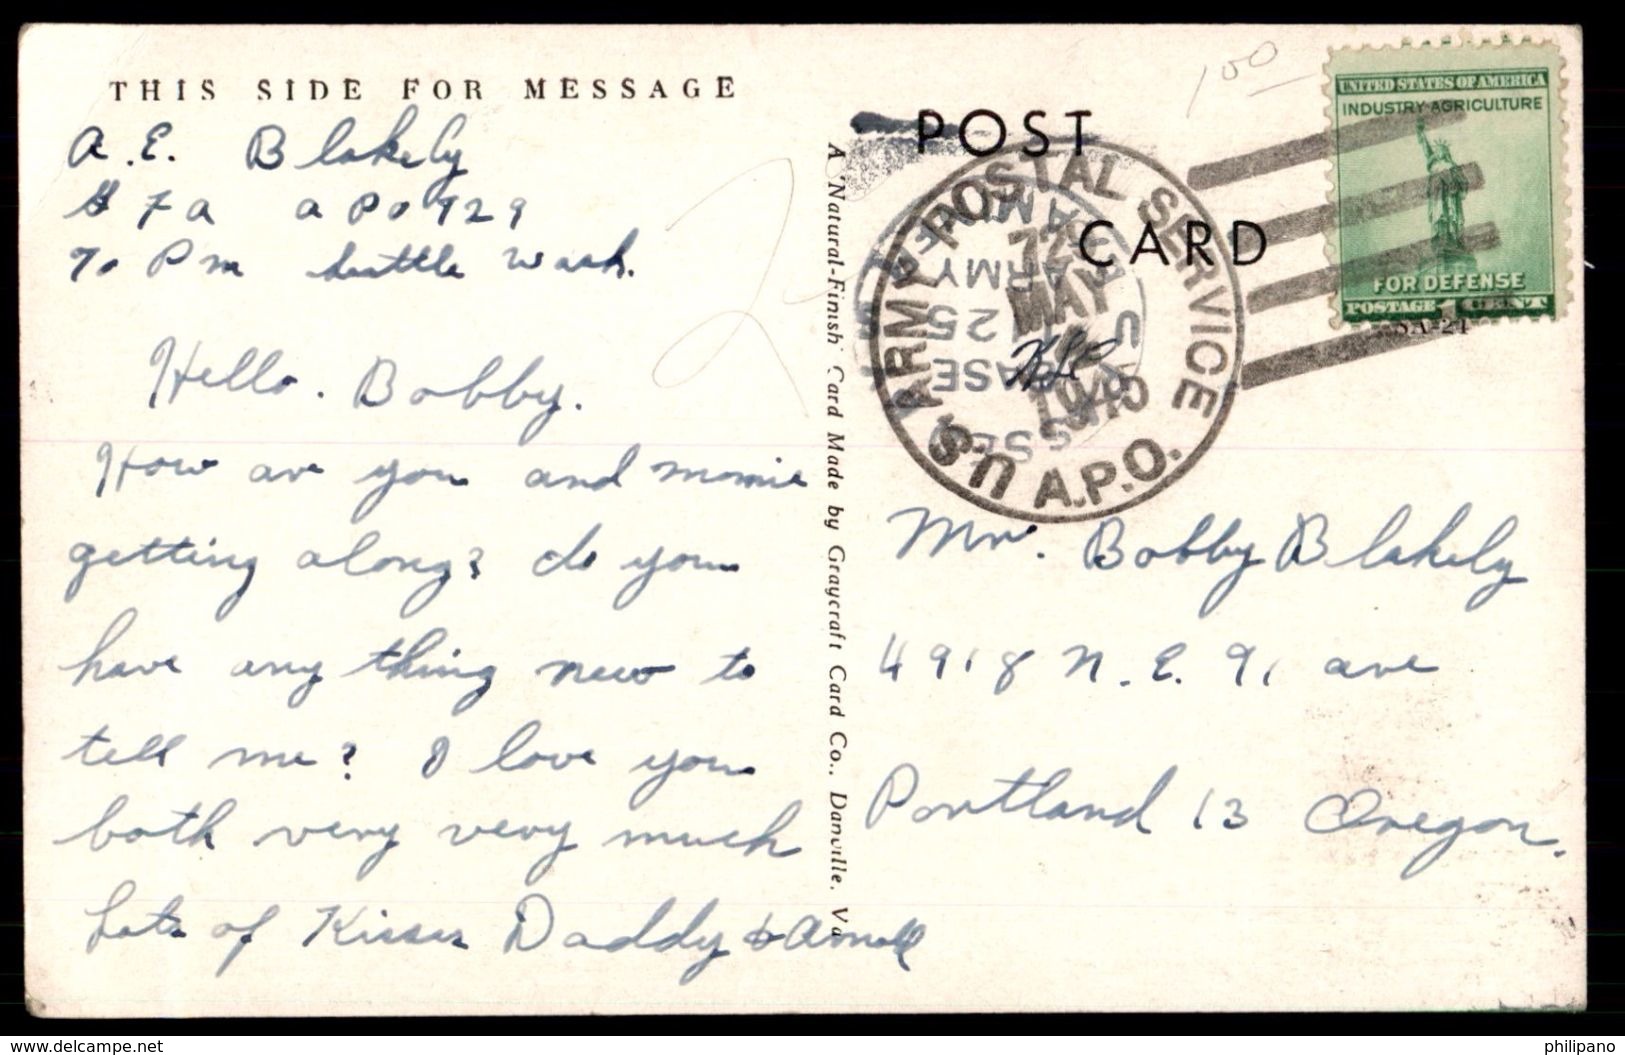 THIS SIDE FOR MESSAGE
A.E. Blakely
A P O 929
Pm Seattle Wash.
Hello. Bobby.
How are you and momie
getting along? do you
have any thing new to
tell me? I love you
both very very much
Lots of Kisses Daddy &
A Natural-Finish Card Made by Graycraft Card Co., Danville. Va
100
POST
CARD
UNITED STATES OF AMERICA
INDUSTRY AGRICULTURE
FOR DEFENSE
POSTAGE 1 CENT
SA-21
U.S. ARMY POSTAL SERVICE
MAY
A.P.O.
U.S. ARMY
BASE
25
Mr. Bobby Blakely
4918 N.E. 91 ave
Portland 13 Oregon.
delcampe.net
philipano